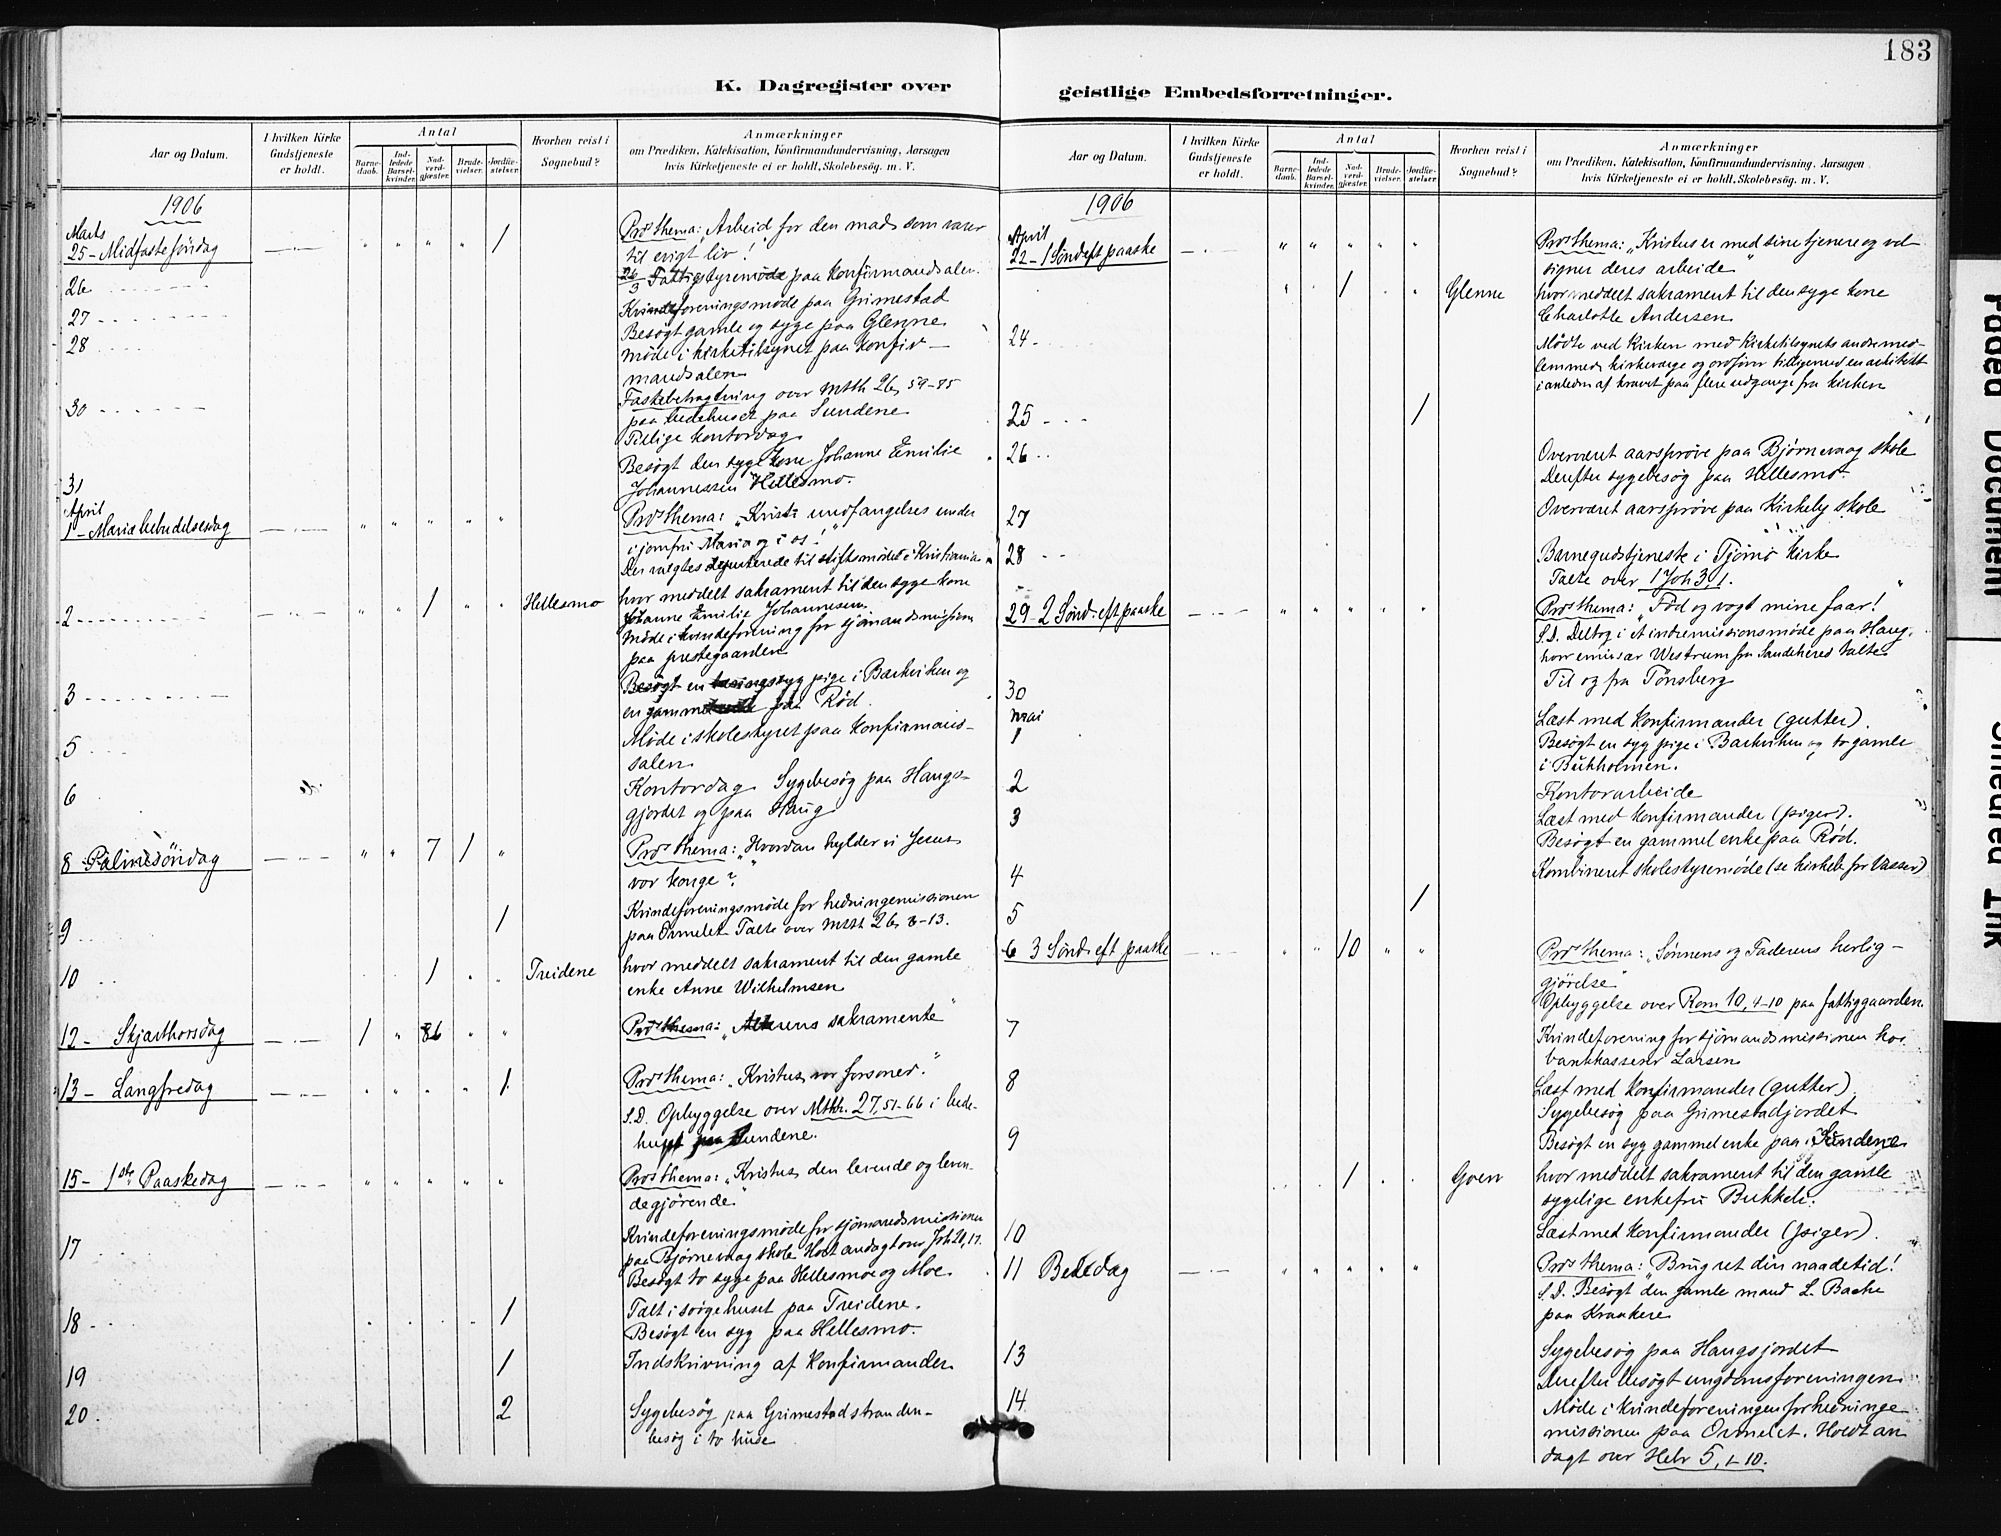 183
K. Dagregister over
geistlige Embedsforretninger.
Aar og Datum.
I hvilken Kirke Gudstjeneste er holdt.
Antal
Barnedaab.
Indledede Barselkvinder.
Nadverdgjæster.
Brudevielser.
Jordfæstelser.
Hvorhen reist i Sognebud?
Anmærkninger
om Prædiken, Katekisation, Konfirmandundervisning, Aarsagen
hvis Kirketjeneste ei er holdt, Skolebesøg. m. V.
1906
Marts
25 - Midfastesöndag — " — " " " " 1 Præs thema: "Arbeid for den mad som varer
til evigt liv!"
26 26/3 Fattigstyremøde paa konfirmandsalen.
27 Kvindeforeningsmøde paa Grimestad
28 Besøgt gamle og syge paa Glenne
Møde i kirketilsynet paa konfir-
mandsalen
30 Fastebetragtning over Mtth 26, 59-75
paa bedehuset paa Sundene
Tillige kontordag
Besøgt den syge kone Johanne Emilie
31 Johannessen Hellesmo.
April
1 - Mariæ bebudelsesdag — " — " " " " " Præs thema: "Kristi undfangelse under
i jomfru Maria og i os!"
Der valgtes deputerede til stiftsmødet i Kristiania
2 " " 1 " " Hellesmo hvor meddelt sakrament til den syge kone
Johanne Emilie Johannesen
Møde i kvindeforening for sjömandsmission
paa prestegaarden
3 Besøgt en syg pige i Bækviken og
en paa Rød.
5 Møde i skolestyret paa konfirmand-
salen
6 Kontordag Sygebesøg paa Haugs-
gjordet og paa Haug
8 Palmesöndag — " — " " 7 1 " Præs thema: "Hvordan hylder vi Jesus
vor konge?"
9 1 Kvindeforeningsmøde for hedningemissionen
paa Ormelet Talte over Mtth 26, 8-13.
10 1 " " Treidene hvor meddelt sakrament til den gamle
enke Anne Wilhelmsen
12 - Skjærthorsdag — " — 1 " 86 " " Præs thema: "Alterens sakramente"
13 - Langfredag — " — " " " " 1 Præs thema: "Kristus vor forsoner."
S.D. Opbyggelse over Mtth. 27, 51-66 i bede-
huset paa Sundene.
15 - 1ste Paaskedag — " — " " " " " Præs thema: "Kristus den levende og leven-
degjörende"
17 Kvindeforeningsmøde for sjömandsmissionen
paa Bjørnevaag skole Holdt andagt over Joh 20, 17.
Besøgt to syge paa Hellesmo og Moe
18 1 Talt i sørgehuset paa Treidene.
Besøgt en syg paa Hellesmo.
19 1 Indskrivning af konfirmander
20 2 Sygebesøg paa Grimestadstranden -
besøg i to huse
Aar og Datum.
I hvilken Kirke Gudstjeneste er holdt.
Antal
Barnedaab.
Indledede Barselkvinder.
Nadverdgjæster.
Brudevielser.
Jordfæstelser.
Hvorhen reist i Sognebud?
Anmærkninger
om Prædiken, Katekisation, Konfirmandundervisning, Aarsagen
hvis Kirketjeneste ei er holdt, Skolebesøg. m. V.
1906
April
22 - 1 Sönd eft paaske — " — " " " " " Præs thema: "Kristus er med sine tjenere og vel-
signer deres arbeide"
" . 1 . " Glenne hvor meddelt sakrament til den syge kone
Charlotte Andersen
24 Mödte ved kirken med kirketilsynets andre med-
lemmer, kirkeværge og ordfører tilligemed en arkitekt
i anledn af kravet paa flere udgange fra kirken
25 1
26 Overværet aarsprøve paa Bjørnevaag skole
Derefter sygebesøg paa Hellesmo
27 Overværet aarsprøve paa Kirkeby skole
28 Barnegudstjeneste i Tjømø Kirke
Talte over 1 Joh 3, 1.
29 - 2 Sönd. eft paaske — " — " " " " " Præs thema: "Fød og vogt mine faar!"
S.D. Deltog i et indremissionsmøde paa Haug,
hvor emissær Westrum fra Sandeherred talte
30 Til og fra Tönsberg
Mai
1 Læst med konfirmander (gutter).
Besøgt en syg pige i Bækviken og to gamle
i Bukholmen.
2 Kontorarbeide
3 Læst med konfirmander (piger).
Besøgt en gammel enke paa Rød.
4 Kombineret skolestyremøde (se kirkeb. for Vasser)
5 1
6 3 Sönd. eft paaske — " — " " 10 " " Præs thema: "Sønnens og Faderens herlig-
gjörelse"
Opbyggelse over Rom 10, 4-10 paa fattiggaarden
7 Kvindeforening for sjömandsmissionen hos
bankkasserer Larsen
8 Læst med konfirmander (gutter)
Sygebesøg paa Grimestadjordet
9 Besøgt en syg gammel enke paa Sundene
1 . . Goen hvor meddelt sakrament til den gamle
sygelige enkefru Bukkeli.
10 Læst med konfirmander (piger).
11 Bededag — " — " " " " " Præs thema: "Brug ret din naadetid!
S.D. Besøgt den gamle mand L. Bache
paa Kraakere
13 Sygebesøg paa Haugsjordet
Derefter besøgt ungdomsforeningen
14 Møde i kvindeforeningen for hedninge
missionen paa Ormelet. Holdt an
dagt over Hebr 5, 1-10.
Faded Document
Smeared Ink